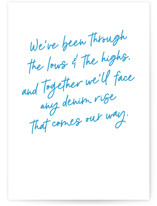 We've been through
the lows & the highs.
and together we'll face
any denim rise
that comes our way.